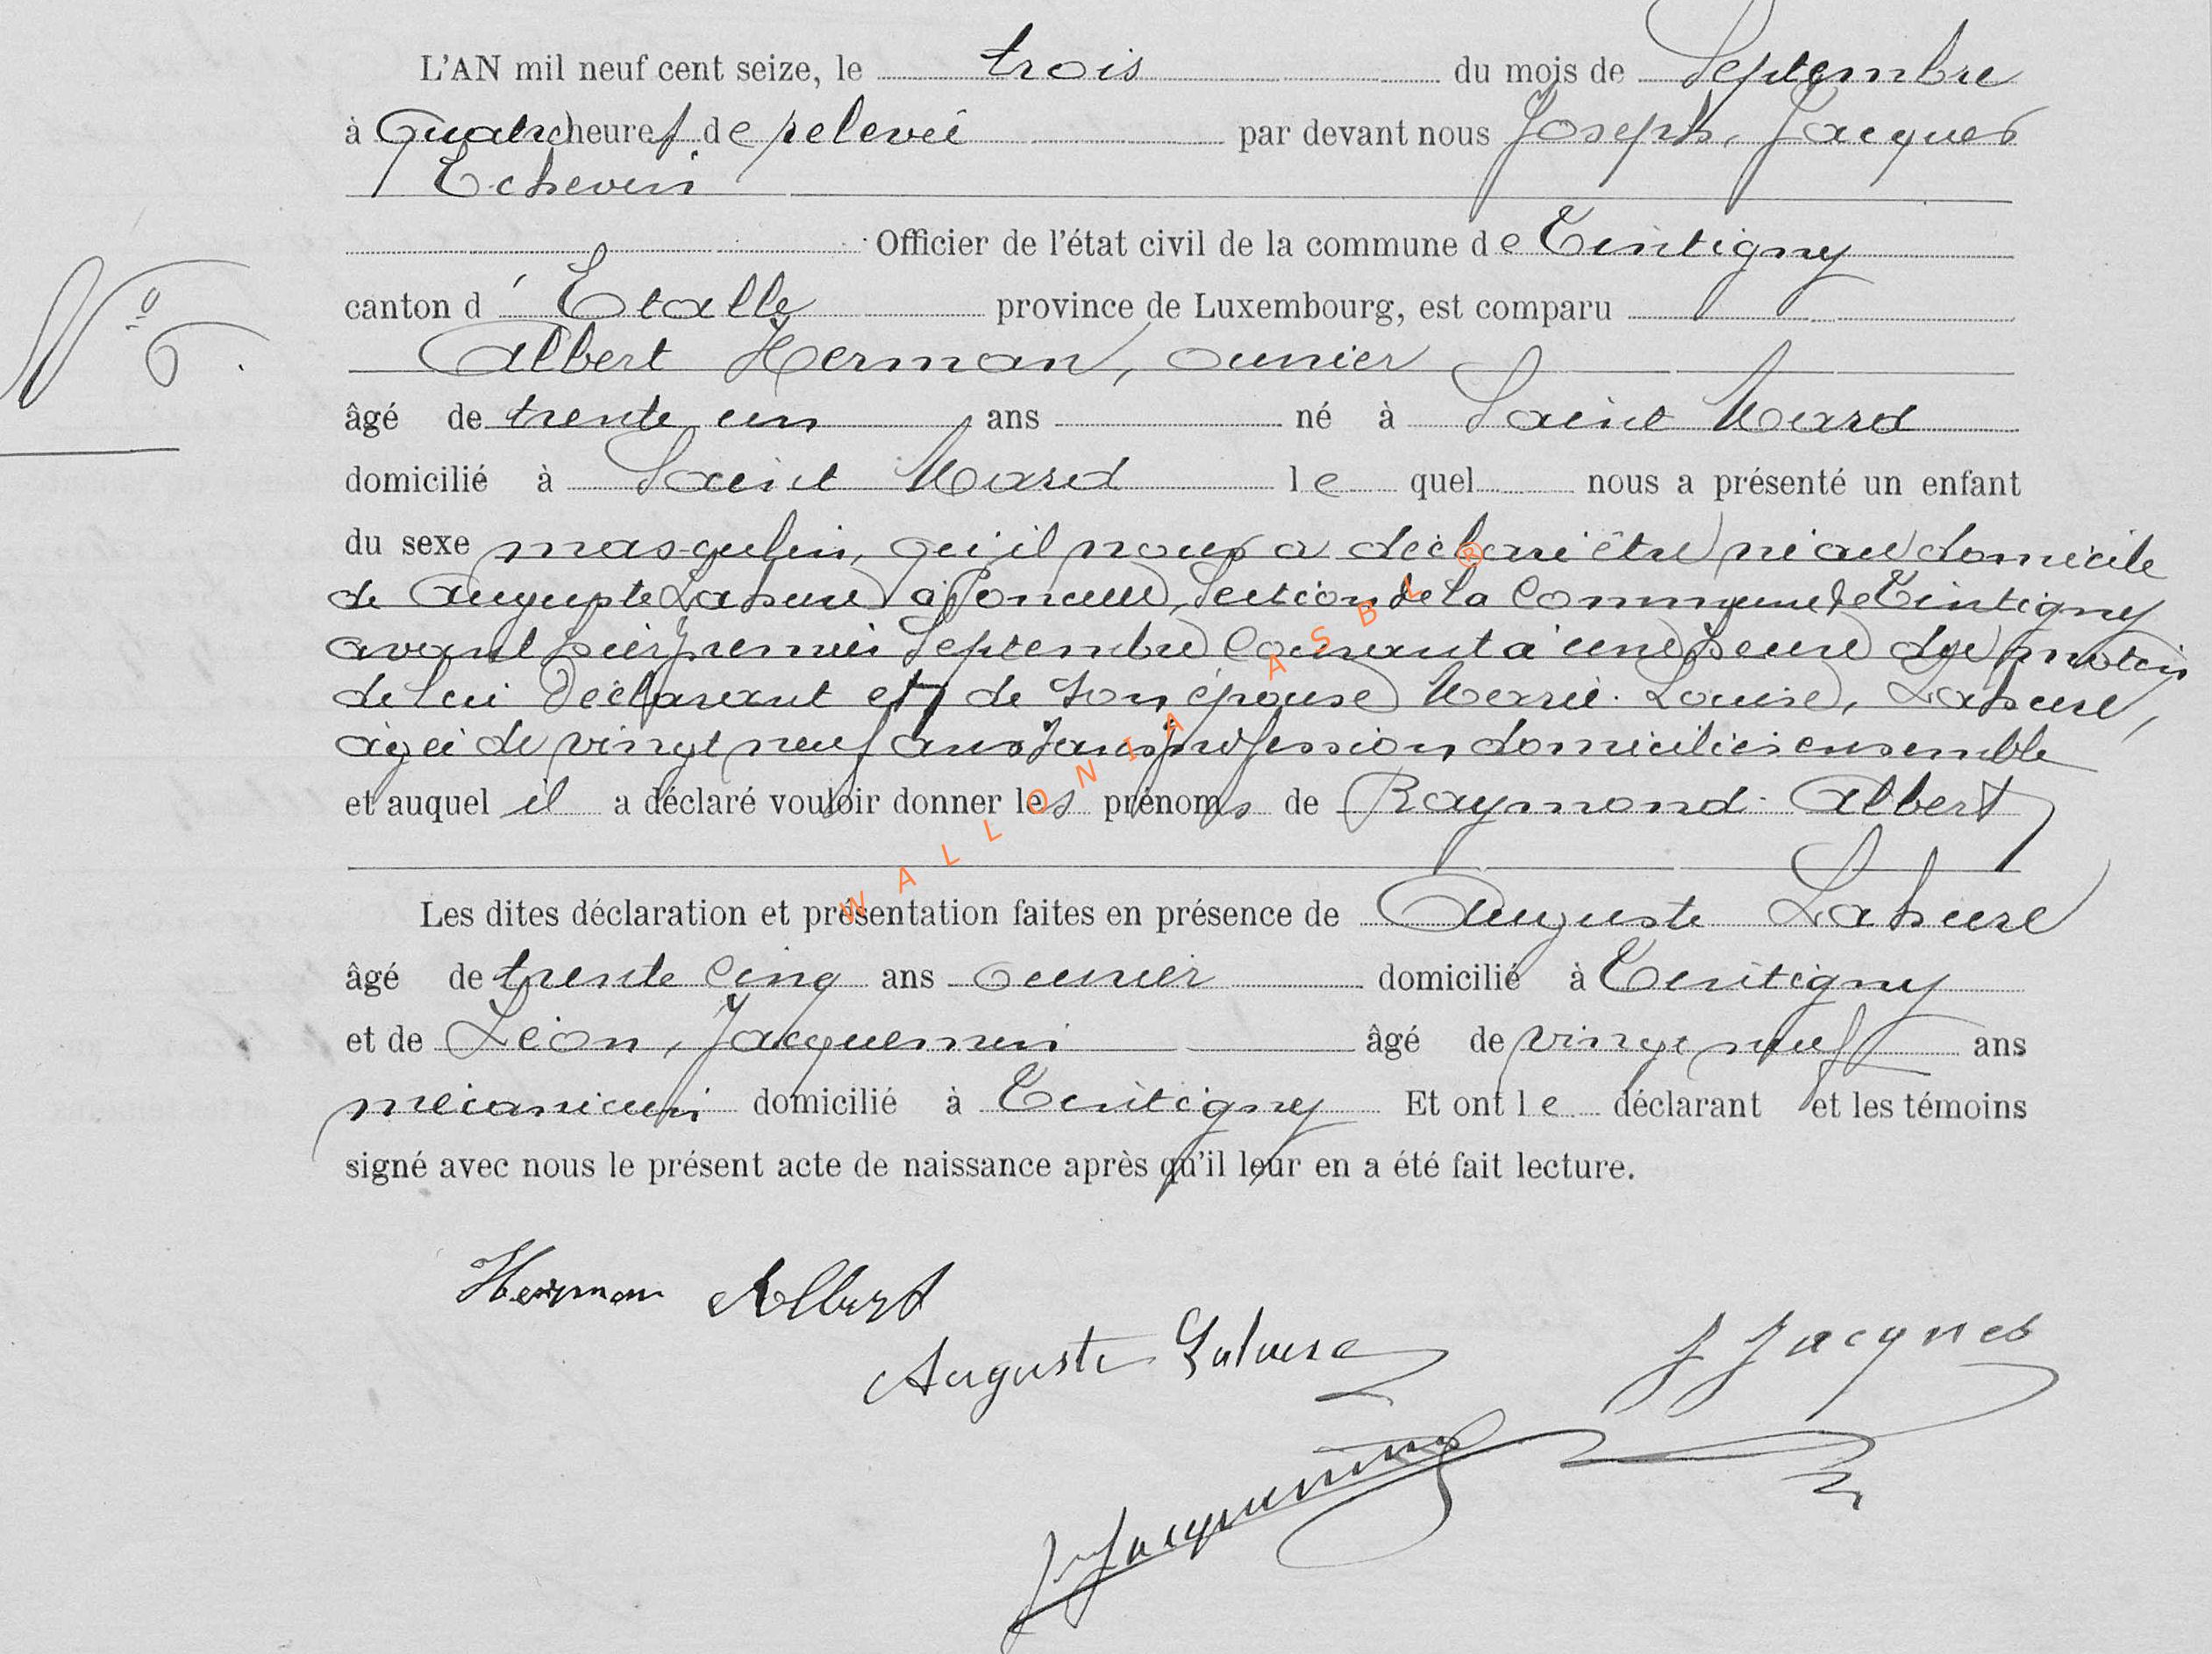 L'AN mil neuf cent seize, le trois du mois de Septembre
à Quatre heures de relevée par devant nous Joseph, Jacques
Echevin
Officier de l'état civil de la commune de Tintigny
canton d' Etalle province de Luxembourg, est comparu
N° 6.
Albert Herman, ouvrier
âgé de trente un ans né à Saint Mard
domicilié à Saint Mard le quel nous a présenté un enfant
du sexe masculin, qu'il nous a déclaré être né au domicile
de Auguste Lahure à Poncelle, Section de la Commune de Tintigny
avant hier premier Septembre Courant à une heure du matin
de lui Déclarant et de son épouse Marie Louise, Lahure,
agée de vingt neuf ans sans profession domiciliés ensemble
et auquel il a déclaré vouloir donner les prénoms de Raymond Albert
Les dites déclaration et présentation faites en présence de Auguste Lahure
âgé de trente Cinq ans ouvrier domicilié à Tintigny
et de Léon, Jacquemin âgé de vingt neuf ans
mécanicien domicilié à Tintigny Et ont le déclarant et les témoins
signé avec nous le présent acte de naissance après qu'il leur en a été fait lecture.
Herman Albert
Auguste Lahure
J Jacques
Jacquemin
WALLONIA ASBL ®